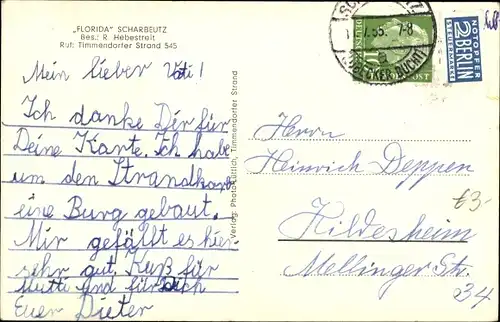 „FLORIDA" SCHARBEUTZ
Bes.: R. Hebestreit
Ruf: Timmendorfer Strand 545
Mein lieber Vati!
Ich danke Dir für
Deine Karte. Ich habe
um den Strandkorb
eine Burg gebaut.
Mir gefällt es hier
sehr gut. Kuß für
Mutti und für Dich
Euer Dieter
Verlag: Photo-Lüttich, Timmendorfer Strand
55. 7-8
(LÜBECKER BUCHT)
10
POST
NOTOPFER
2 BERLIN
STEUERMARKE
Herrn
Heinrich Deppen
Hildesheim
Mellinger Str.
34
£3-